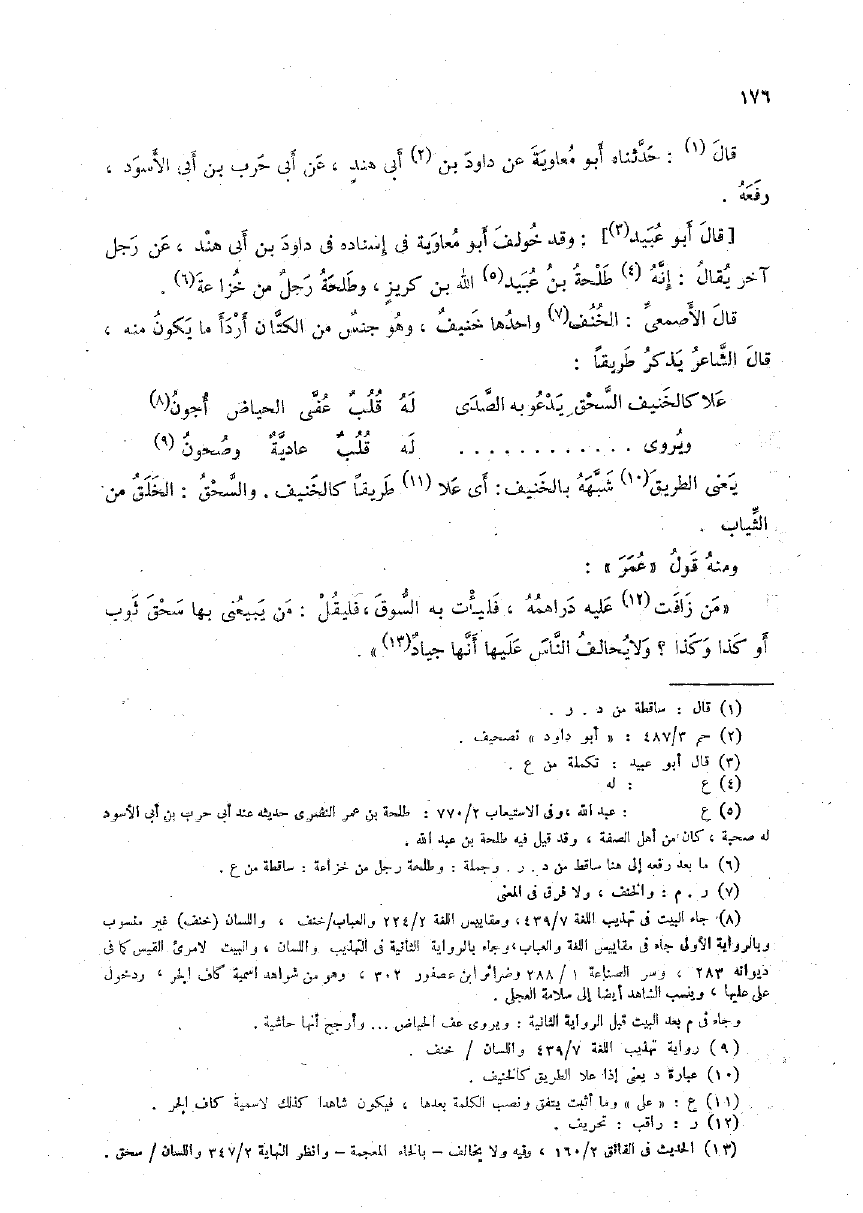 ١٧٦
قالَ (١) : حَدَّثناه أَبو مُعاويَةَ عن داودَ بن (٢) أَبى هندٍ ، عَن أَبى حَرب بن أَبى الأَسوَد ،
رفَعَهُ .
[ قالَ أَبو عُبَيد(٣)] : وقد خُولفَ أَبو مُعاوَية فى إِسناده فى داودَ بن أَبى هنْد ، عَن رَجل
آخر يُقالُ : إِنَّهُ (٤) طَلْحةُ بنُ عُبَيد(٥) الله بن كريزٍ ، وطَلحَةُ رَجلٌ من خُزاعةَ(٦) .
قالَ الأَصمعىُّ : الخُنُف(٧) واحدُها خَنيفٌ ، وهُو جنسٌ من الكتَّان أَرْدَأ ما يَكونُ منه ،
قالَ الشَّاعرُ يَذكرُ طَريقاً :
عَلا كالخَنيف السَّحْقِ يَدْعُو به الصَّدَى لَهُ قُلُبٌ عُفَّى الحياض أُجونُ(٨)
ويُروى . . . . . . . . . . . . لَه قُلُبٌ عاديَّةٌ وصُحونُ (٩)
يَعنى الطريقَ(١٠) شَبَّهَهُ بالخَنيف : أَى عَلا (١١) طَريقاً كالخَنيف . والسَّحْقُ : الخَلَقُ من
الثِّياب .
ومنهُ قَولُ «عُمَرَ » :
«مَن زَافَت (١٢) عَليه دَراهمُهُ ، فَليأْت به السُّوقَ ، فَليقُلْ : مَن يَبيعُنى بها سَحْقَ ثَوب
أَو كَذا وَكَذا ؟ وَلايُحالفُ النَّاسَ عَلَيها أَنَّها جيادٌ(١٣)» .
(١) قال : ساقطة من د . ر .
(٢) حم ٤٨٧/٣ : « أبو داود » تصحيف .
(٣) قال أبو عبيد : تكملة من ع .
(٤) ع : له
(٥) ع : عبد الله ،وفى الاستيعاب ٧٧٠/٢ : طلحة بن عمر النضرى حديثه عند أبى حرب بن أبى الأسود
له صحبة ، كان من أهل الصفة ، وقد قيل فيه طلحة بن عبد الله .
(٦) ما بعد رفعه إلى هنا ساقط من د . ر . وجملة : وطلحة رجل من خزاعة : ساقطة من ع .
(٧) ر . م : والخنف ، ولا فرق فى المعنى
(٨) جاء البيت فى تهذيب اللغة ٤٣٩/٧ ، ومقاييس اللغة ٢٢٤/٢ والعباب/خنف ، واللسان (خنف) غير منسوب
وبالرواية الأولى جاء فى مقاييس اللغة والعباب،وجاء بالرواية الثانية فى التهذيب واللسان ، والبيت لامرئ القيس كما فى
ديوانه ٢٨٣ ، وسر الصناعة ١ / ٢٨٨ وضرائر ابن عصفور ٣٠٢ ، وهو من شواهد اسمية كاف الجر ، ودخول
على عليها ، وينسب الشاهد أيضا إلى سلامة العجلى .
وجاء فى م بعد البيت قبل الرواية الثانية : ويروى عف الحياض ... وأرجح أنها حاشية .
(٩) رواية تهذيب اللغة ٤٣٩/٧ واللسان / خنف .
(١٠) عبارة د يعنى إذا علا الطريق كالخنيف .
(١١) ع : « على » وما أثبت يتفق ونصب الكلمة بعدها ، فيكون شاهدا كذلك لاسمية كاف الجر .
(١٢) ر : راقب : تحريف .
(١٣) الحديث فى الفائق ١٦٠/٢ ، وفيه ولا يخالف – بالخاء المعجمة – وانظر النهاية ٣٤٧/٢ واللسان / سحق .